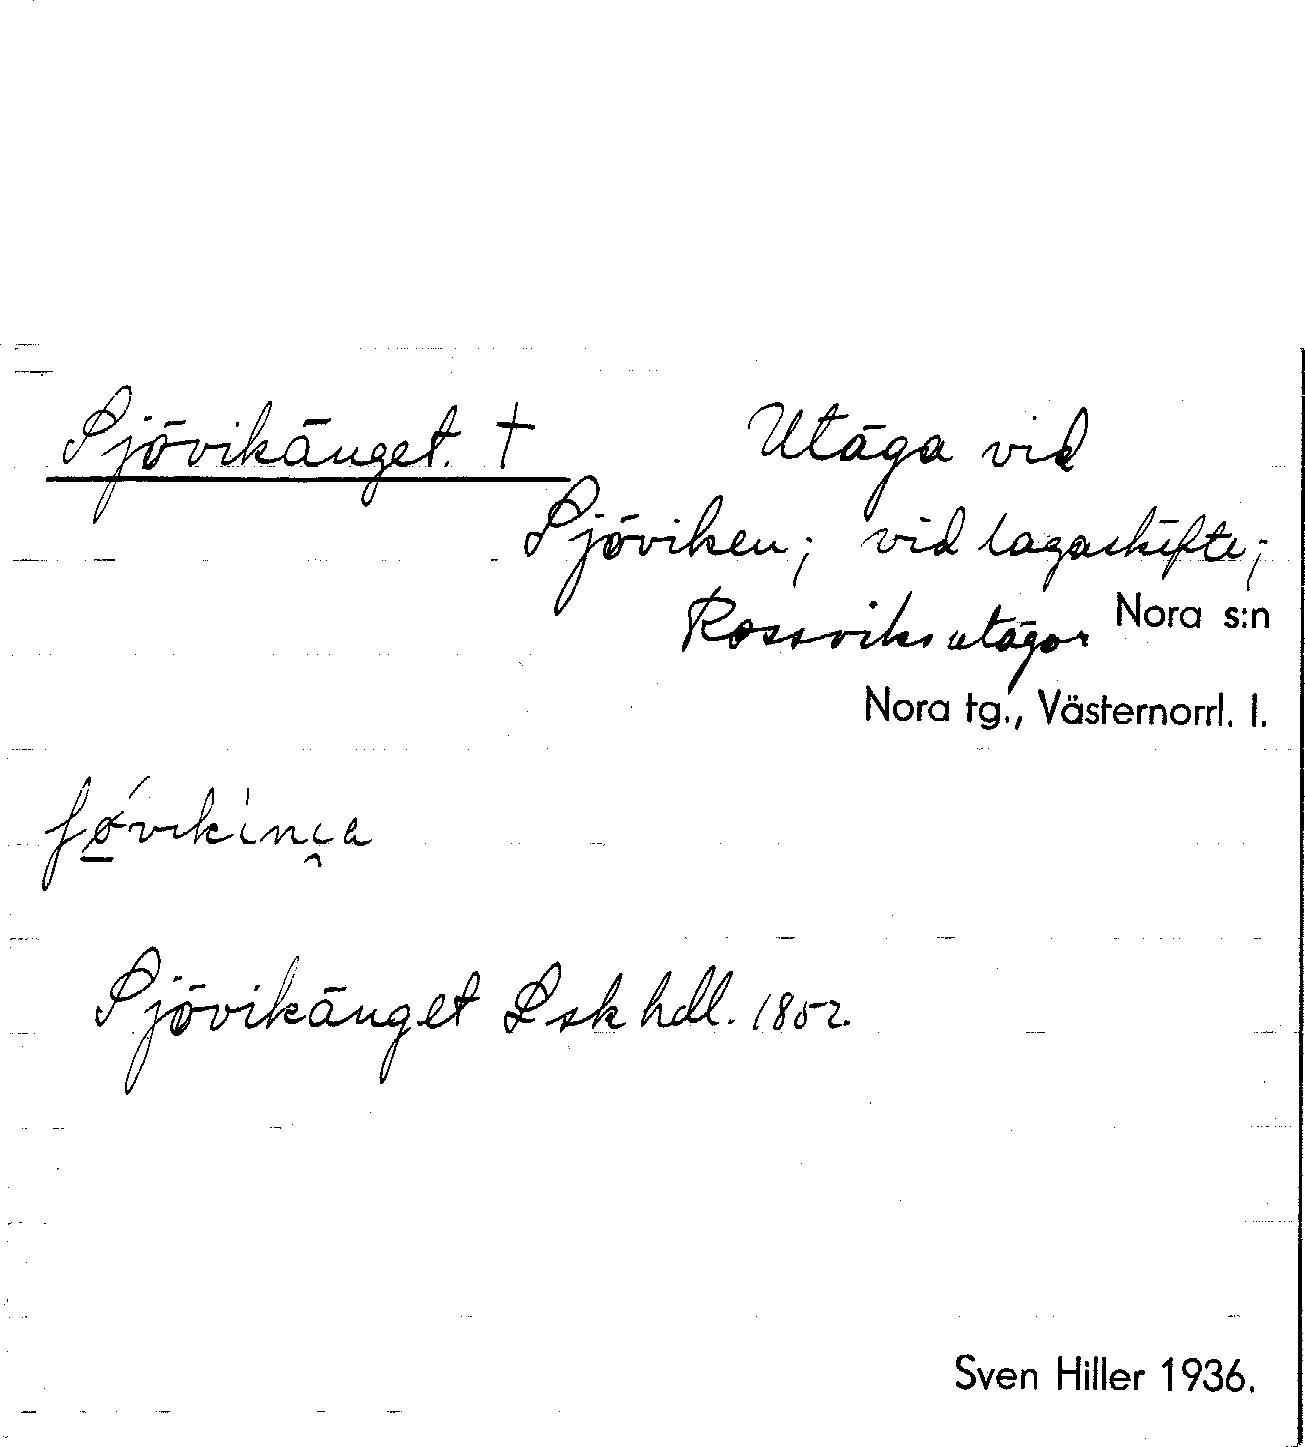 Sjövikänget. †
Utäga vid
Sjöviken; vid lagaskifte;
Rossviks utägor Nora s:n
Nora tg., Västernorrl. l.
Sjövikänget Lsk hdl. 1852.
Sven Hiller 1936.